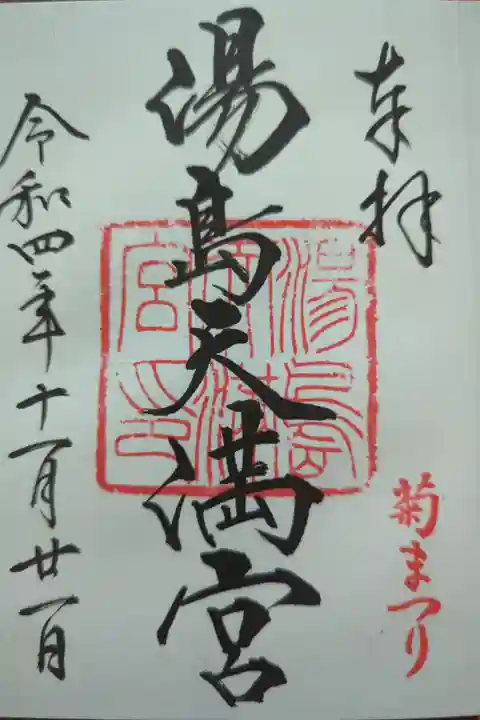 奉拝
菊まつり
湯島天満宮
湯島天満宮印
令和四年十一月廿一日